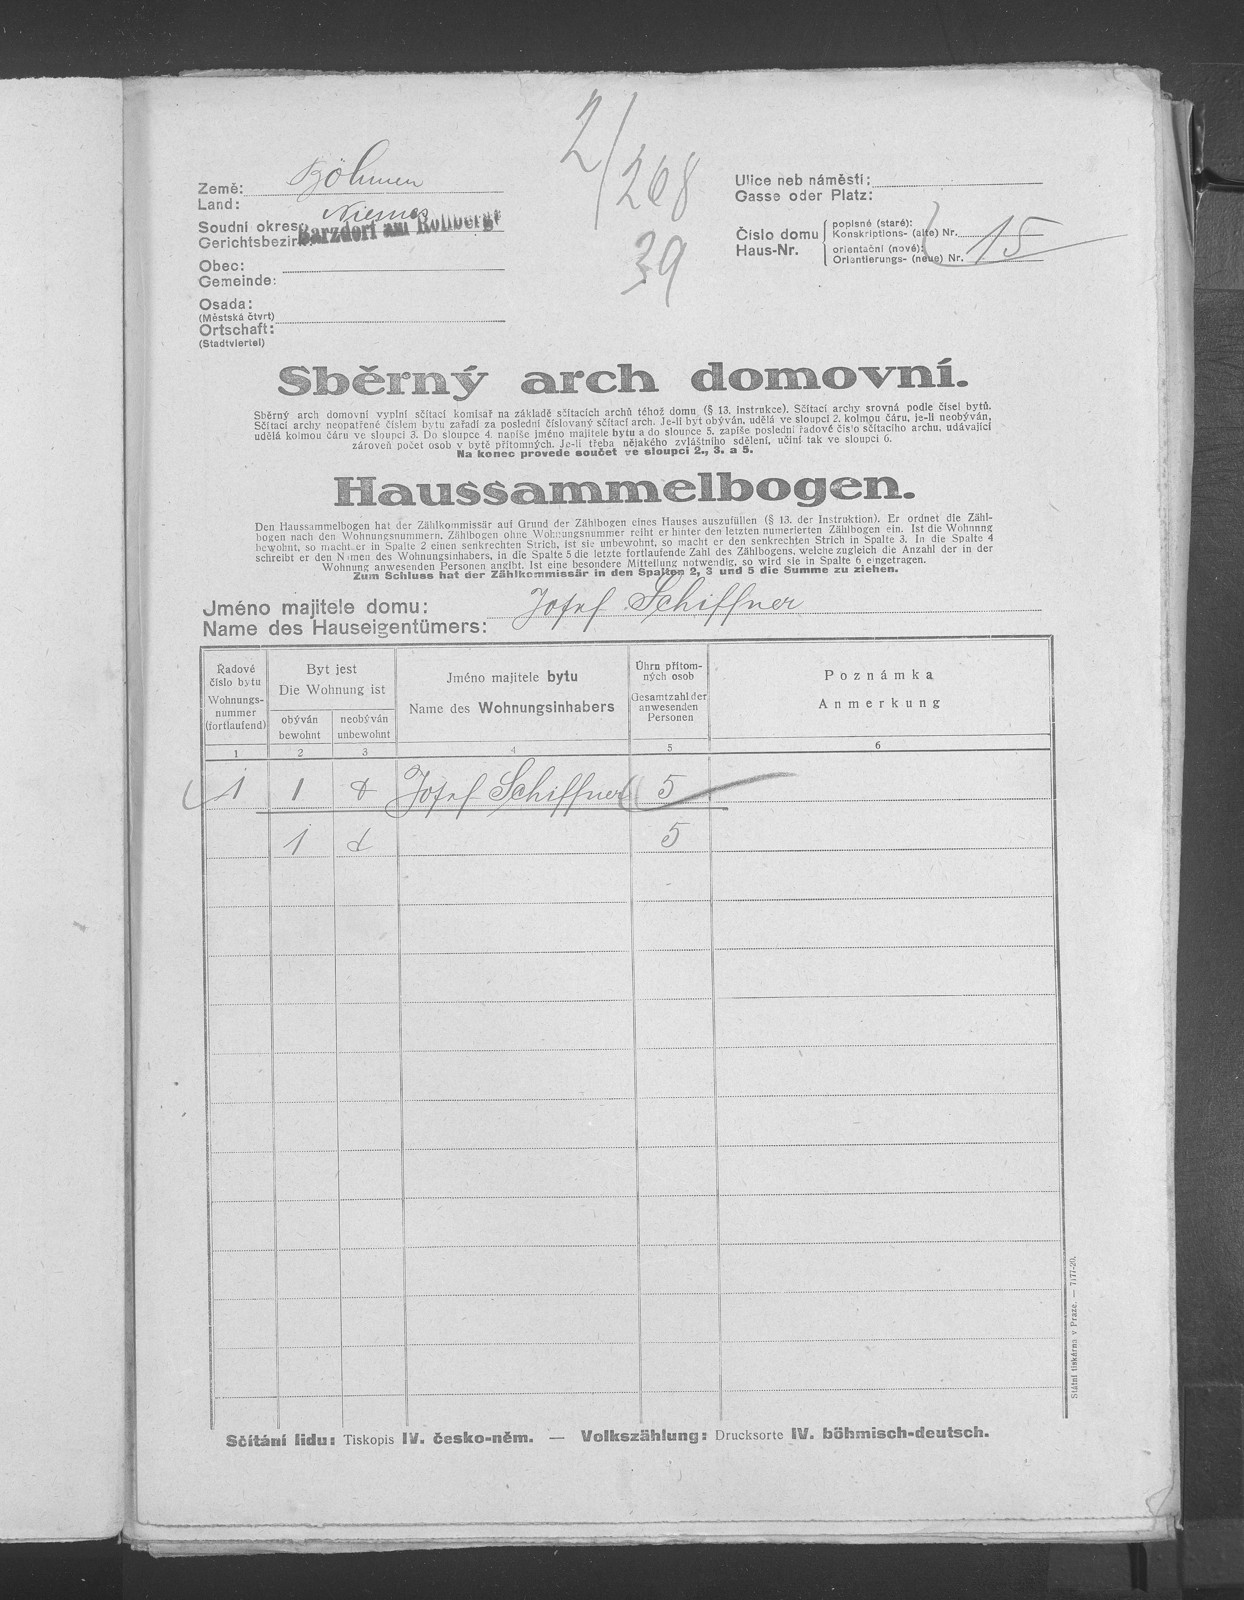 2/268
39
Země: Böhmen
Land:
Soudní okres: Niemes
Gerichtsbezirk: Barzdorf am Rollberge
Obec:
Gemeinde:
Osada:
(Městská čtvrt)
Ortschaft:
(Stadtviertel)
Ulice neb náměstí:
Gasse oder Platz:
Číslo domu
Haus-Nr.
popisné (staré):
Konskriptions- (alte) Nr.
orientační (nové):
Orientierungs- (neue) Nr. 15
Sběrný arch domovní.
Sběrný arch domovní vyplní sčítací komisař na základě sčítacích archů téhož domu (§ 13. instrukce). Sčítací archy srovná podle čísel bytů.
Sčítací archy neopatřené číslem bytu zařadí za poslední číslovaný sčítací arch. Je-li byt obýván, udělá ve sloupci 2. kolmou čáru, je-li neobýván,
udělá kolmou čáru ve sloupci 3. Do sloupce 4. napíše jméno majitele bytu a do sloupce 5. zapíše poslední řadové číslo sčítacího archu, udávající
zároveň počet osob v bytě přítomných. Je-li třeba nějakého zvláštního sdělení, učiní tak ve sloupci 6.
Na konec provede součet ve sloupci 2., 3. a 5.
Haussammelbogen.
Den Haussammelbogen hat der Zählkommissär auf Grund der Zählbogen eines Hauses auszufüllen (§ 13. der Instruktion). Er ordnet die Zähl-
bogen nach den Wohnungsnummern. Zählbogen ohne Wohnungsnummer reiht er hinter den letzten numerierten Zählbogen ein. Ist die Wohnung
bewohnt, so macht er in Spalte 2 einen senkrechten Strich, ist sie unbewohnt, so macht er den senkrechten Strich in Spalte 3. In die Spalte 4
schreibt er den Namen des Wohnungsinhabers, in die Spalte 5 die letzte fortlaufende Zahl des Zählbogens, welche zugleich die Anzahl der in der
Wohnung anwesenden Personen angibt. Ist eine besondere Mitteilung notwendig, so wird sie in Spalte 6 eingetragen.
Zum Schluss hat der Zählkommissär in den Spalten 2, 3 und 5 die Summe zu ziehen.
Jméno majitele domu: Josef Schiffner
Name des Hauseigentümers:
Řadové číslo bytu
Wohnungs-nummer (fortlaufend)
Byt jest
Die Wohnung ist
obýván
bewohnt
neobýván
unbewohnt
Jméno majitele bytu
Name des Wohnungsinhabers
Úhrn přítom-ných osob
Gesamtzahl der anwesenden Personen
Poznámka
Anmerkung
1 2 3 4 5 6
1 1 Josef Schiffner 5
1 5
Sčítání lidu: Tiskopis IV. česko-něm. — Volkszählung: Drucksorte IV. böhmisch-deutsch.
Státní tiskárna v Praze. — 7177-20.